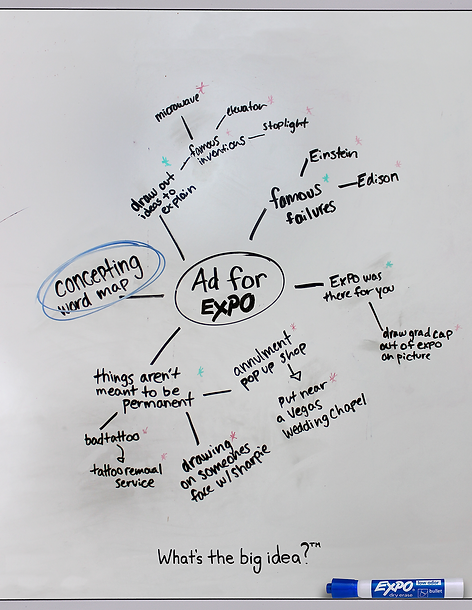 microwave
elevator
stoplight
famous
inventions
draw out
ideas to
explain
Einstein
Edison
famous
failures
concepting
word map
Ad for
EXPO
EXPO was
there for you
draw grad cap
out of expo
on picture
things aren't
meant to be
permanent
annulment
pop up shop
put near
a Vegas
wedding chapel
bad tattoo
tattoo removal
service
drawing
on someones
face w/sharpie
What's the big idea?™
EXPO
dry erase
low odor
bullet